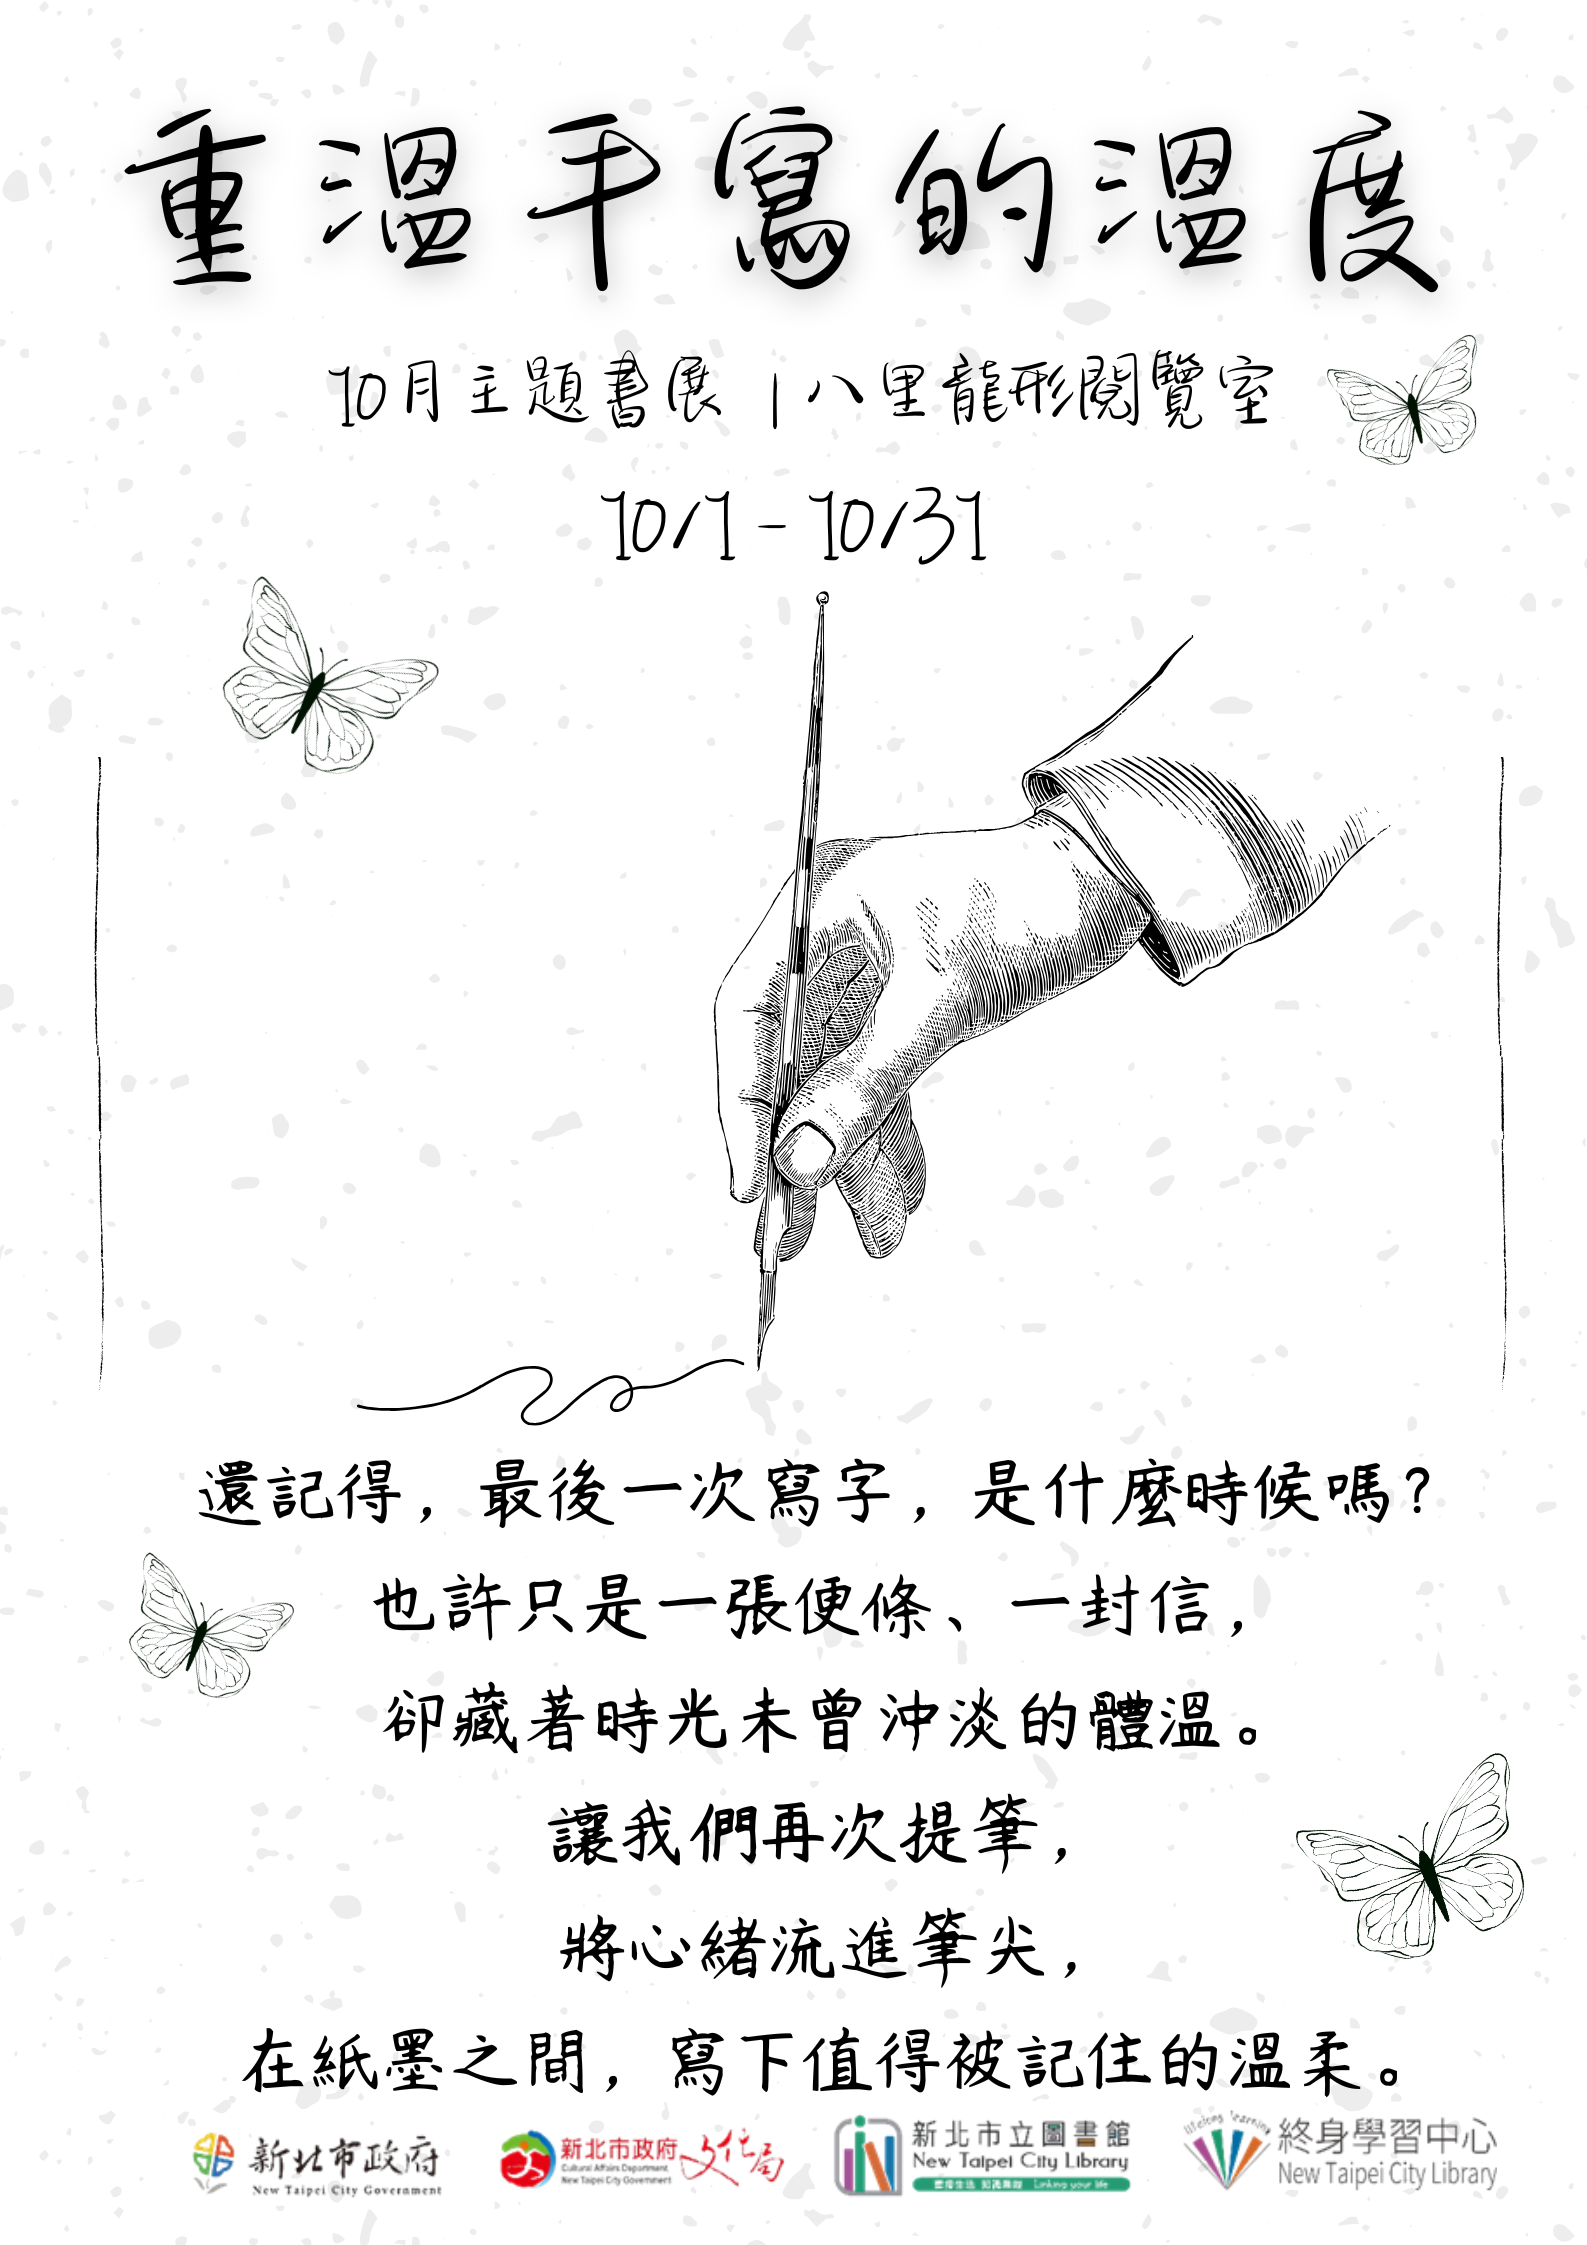 重溫手寫的溫度
10月主題書展 | 八里龍形閱覽室
10/1 - 10/31
還記得，最後一次寫字，是什麼時候嗎？
也許只是一張便條、一封信，
卻藏著時光未曾沖淡的體溫。
讓我們再次提筆，
將心緒流進筆尖，
在紙墨之間，寫下值得被記住的溫柔。
新北市政府
New Taipei City Government
新北市政府文化局
Cultural Affairs Department,
New Taipei City Government
新北市立圖書館
New Taipei City Library
Linking your life
lifelong learning
終身學習中心
New Taipei City Library